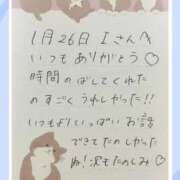 1月26日 Iさんへ
いつもありがとう♡
時間のばしてくれた
のすごくうれしかった!!
いつもよりいっぱいお話
できてたのしかった
ね!次もたのしみ♡